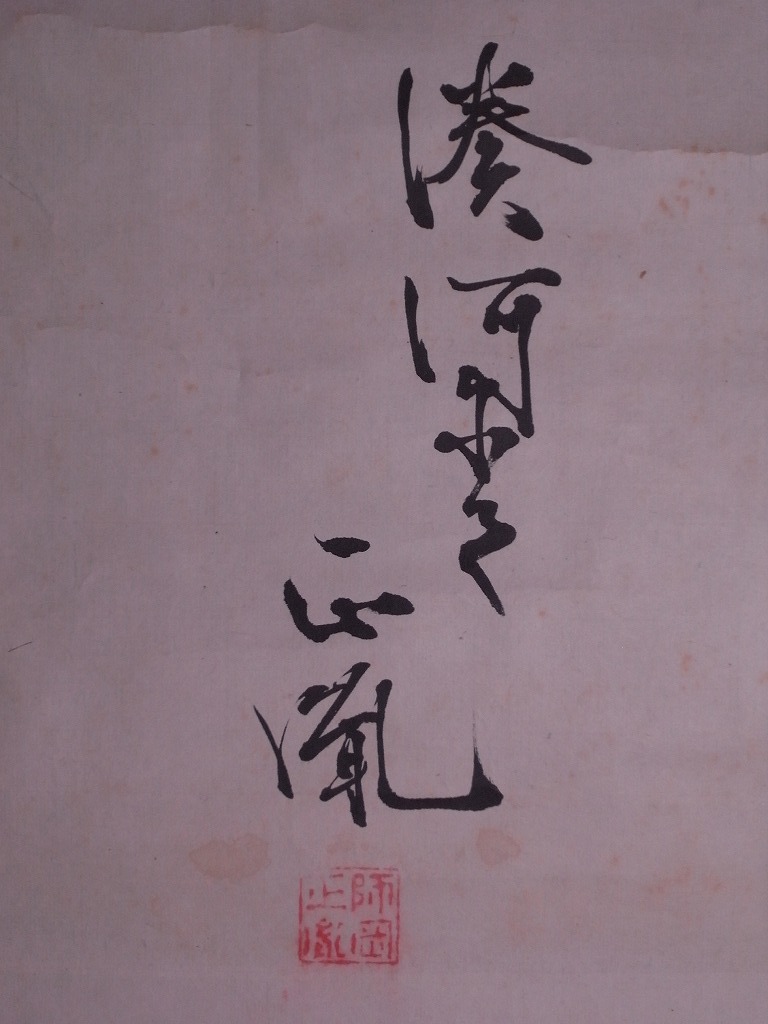 湊河
正胤
師岡
正胤